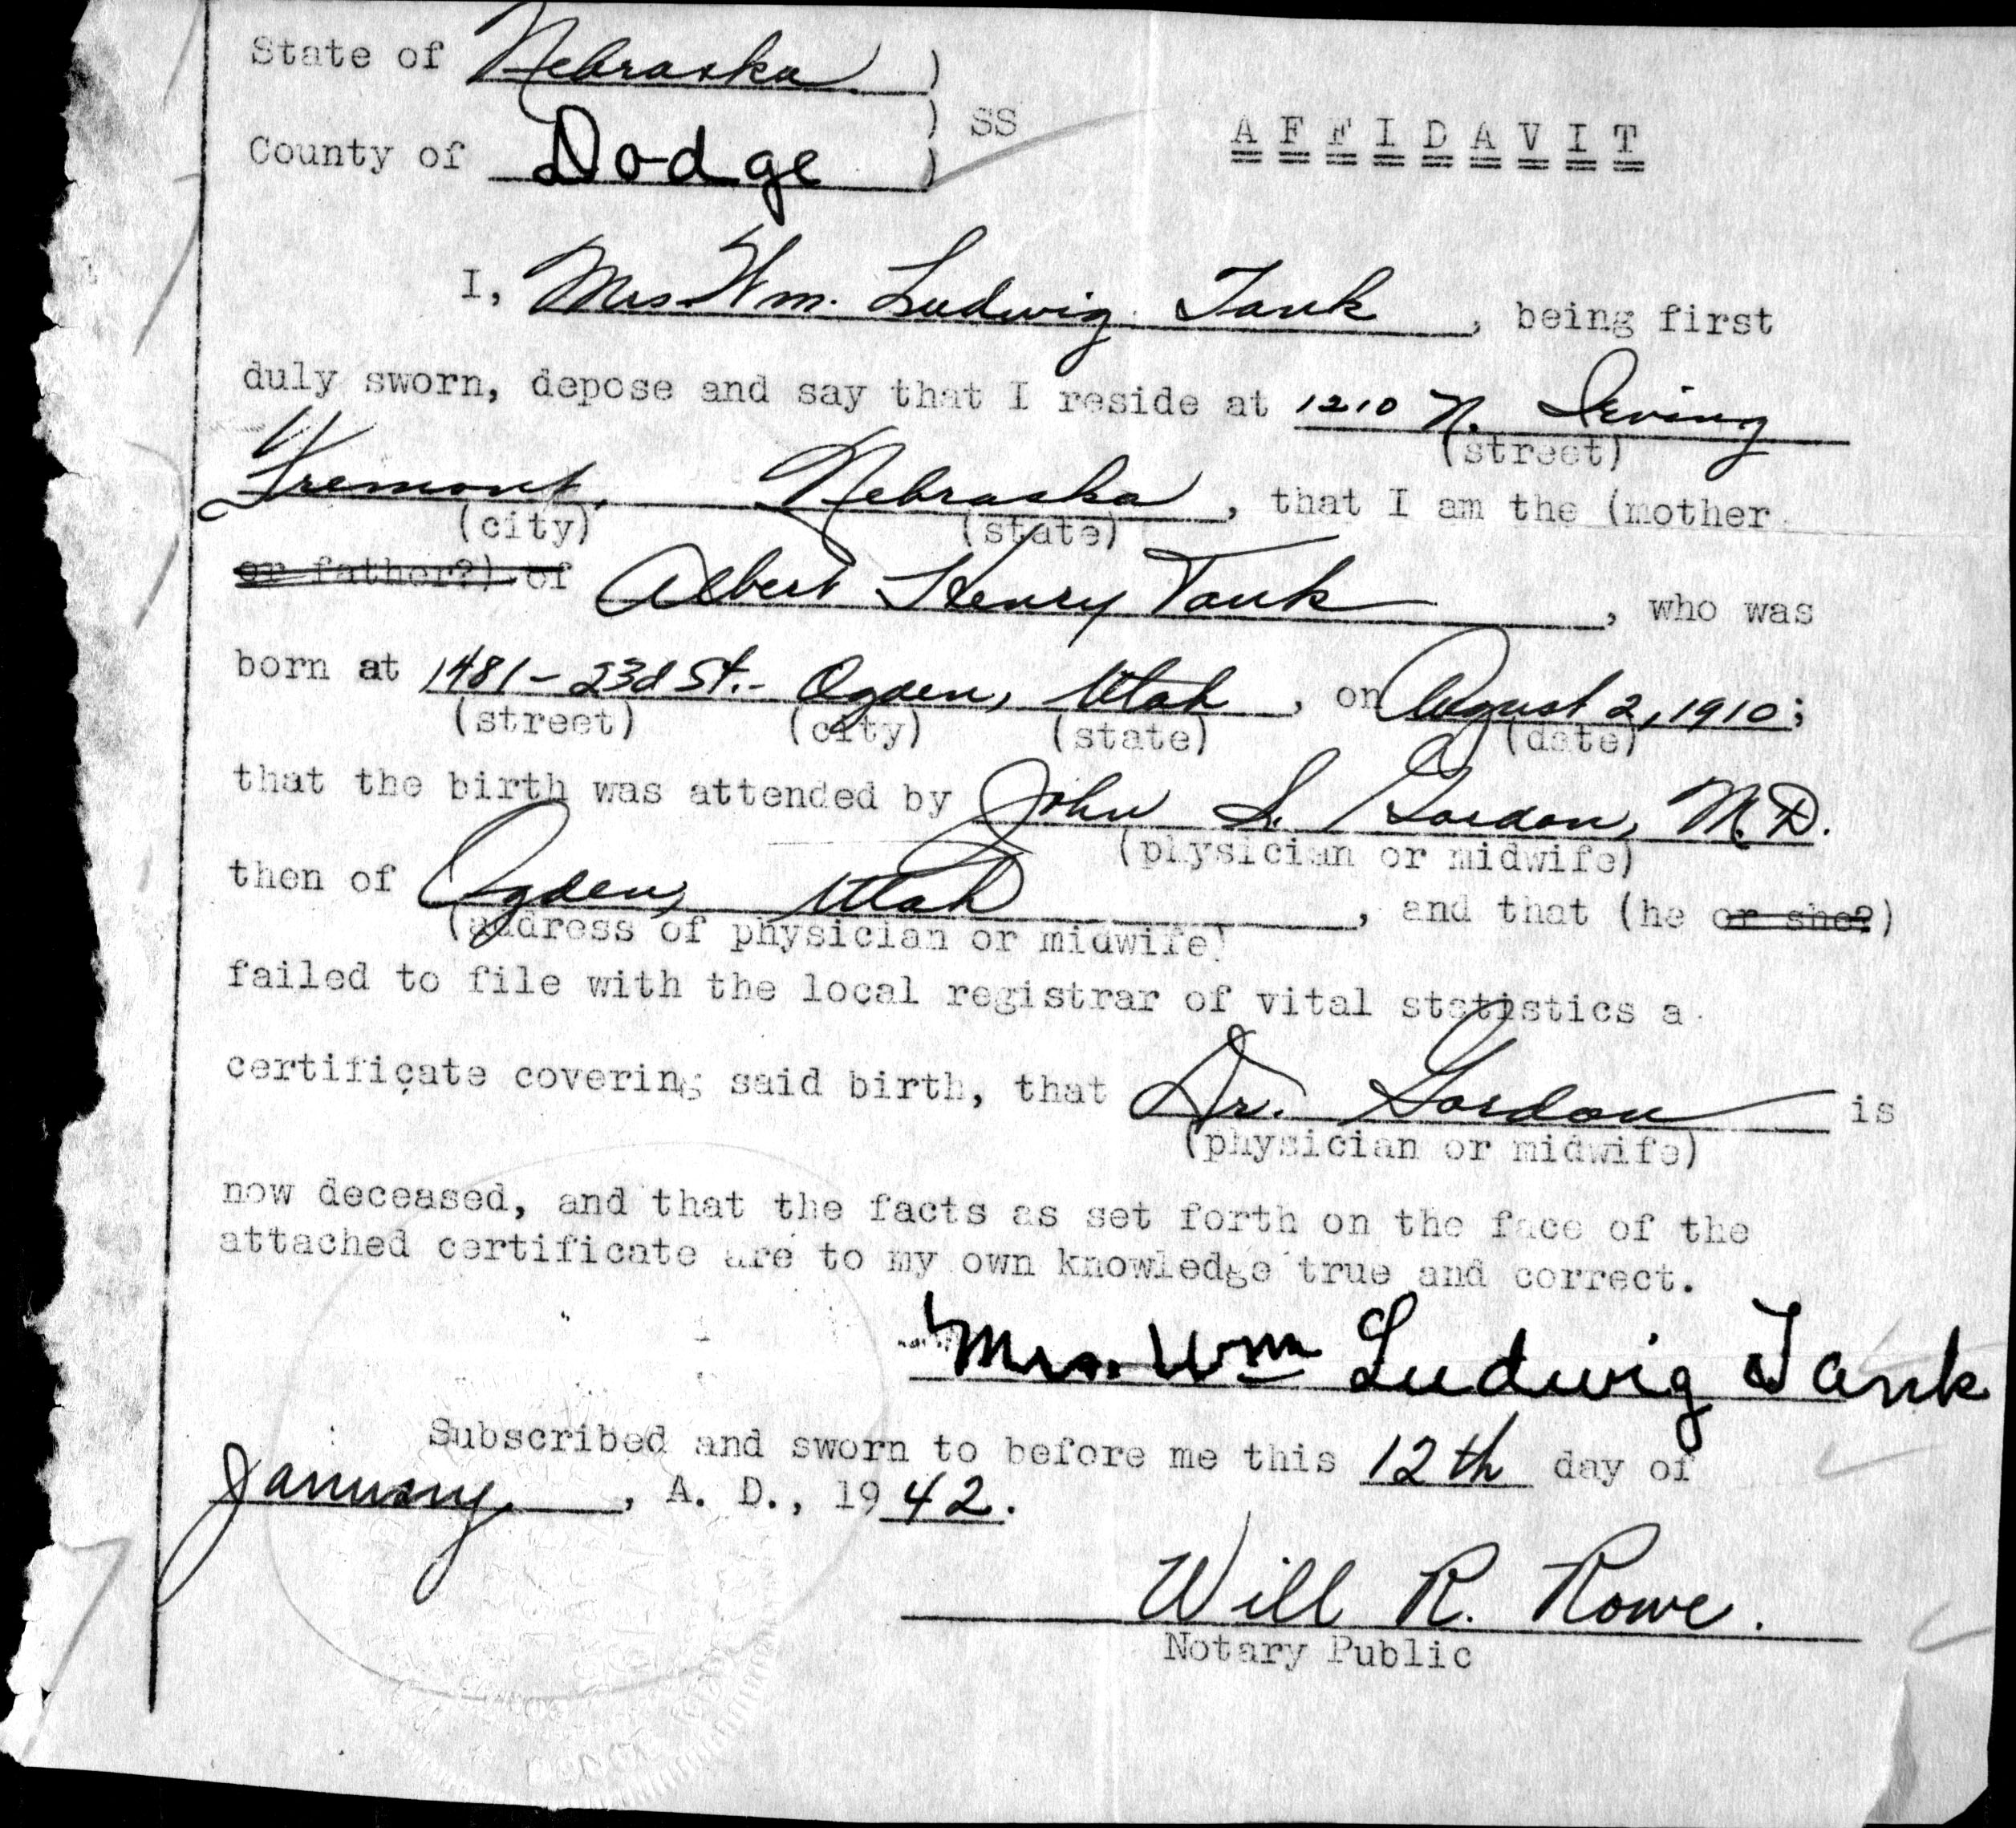 State of Nebraska )
) SS
County of Dodge )
A F F I D A V I T
I, Mrs. Wm. Ludwig Tank, being first
duly sworn, depose and say that I reside at 1210 N. Irving
(street)
Fremont, Nebraska, that I am the (mother
(city) (state)
or father?) of Albert Henry Tank, who was
born at 1481 - 23d St. - Ogden, Utah, on August 2, 1910;
(street) (city) (state) (date)
that the birth was attended by John S. Gordon, M.D.
(physician or midwife)
then of Ogden, Utah, and that (he or she?)
(address of physician or midwife)
failed to file with the local registrar of vital statistics a
certificate covering said birth, that Dr. Gordon is
(physician or midwife)
now deceased, and that the facts as set forth on the face of the
attached certificate are to my own knowledge true and correct.
Mrs. Wm Ludwig Tank
Subscribed and sworn to before me this 12th day of
January, A. D., 1942.
Will R. Rowe.
Notary Public